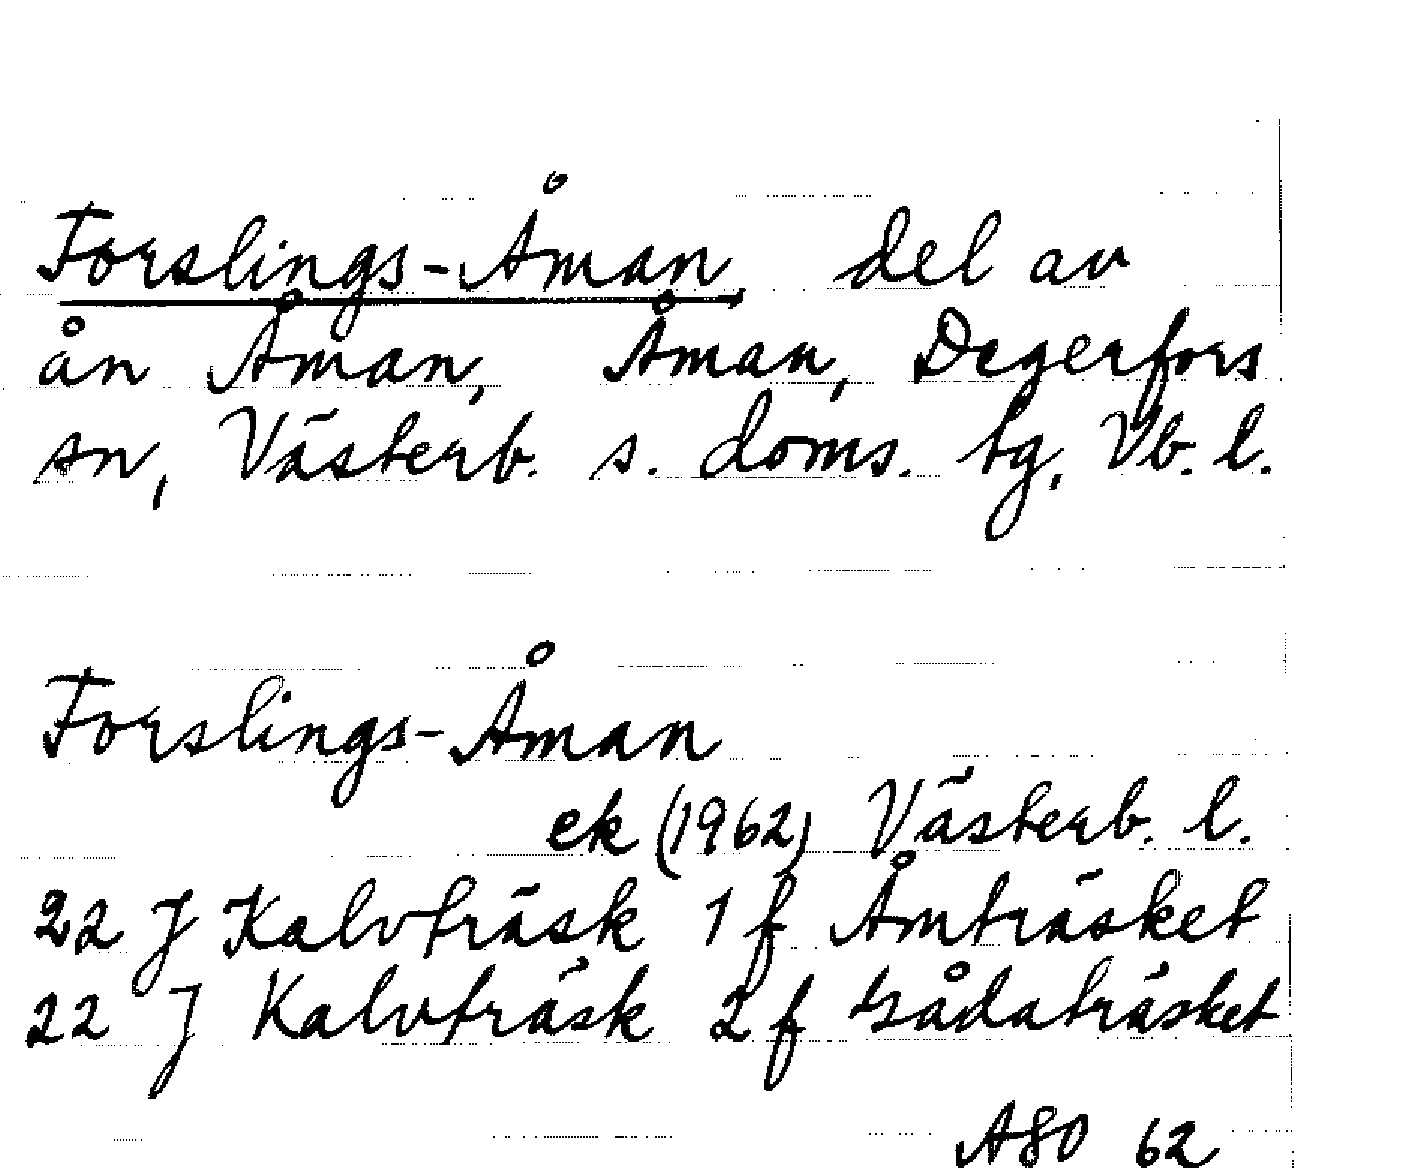 Forslings-Åman, del av
ån Åman, Åman, Degerfors
sn, Västerb. s. doms. tg, Vb. l.
Forslings-Åman
ek (1962) Västerb. l.
22 J Kalvträsk 1 f Åmträsket
22 J Kalvträsk 2 f
62